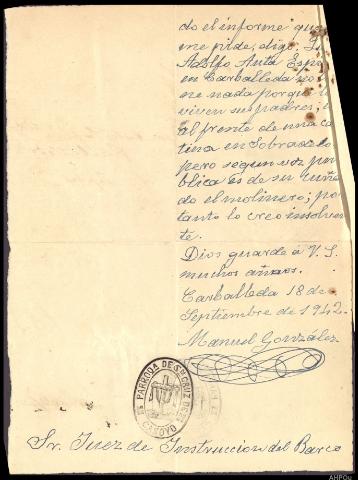 do el informe que
me pide, digo
Adolfo Anta Espa
en Carballeda no
ne nada porque
viven sus padres,
al frente de una ca
tina en Sobrad
pero segun voz pu
blica es de su cuña
do el molinero; po
tanto lo creo insolve
te.
Dios guarde á V. S.
muchos años.
Carballeda 18 de
Septiembre de 1942.
Manuel González
PARROQA DE Sta CRUZ DE
CASOYO
Sr. Juez de Instruccion del Barco
AHPOu